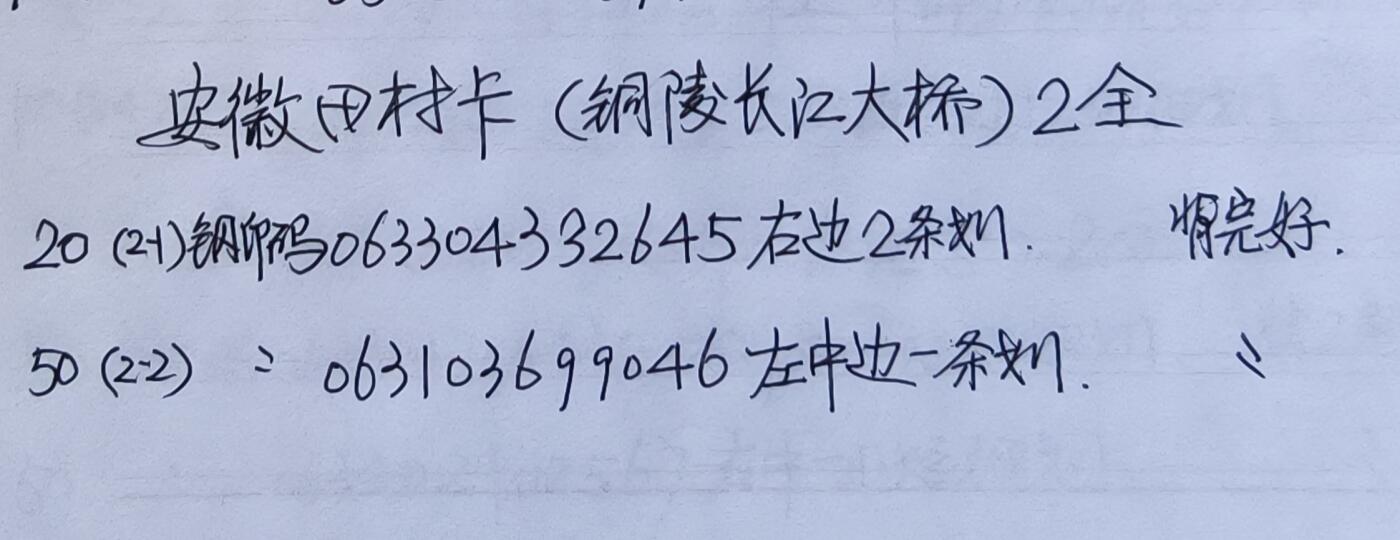 安徽田村卡（铜陵长江大桥）2全
20 (2-1)钢印码063304332645右边2条划. 背完好.
50 (2-2) 〃 063103699046左中边一条划. 〃